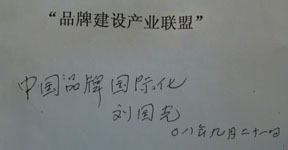 “品牌建设产业联盟”
中国品牌国际化
刘国光
〇八年九月二十一日